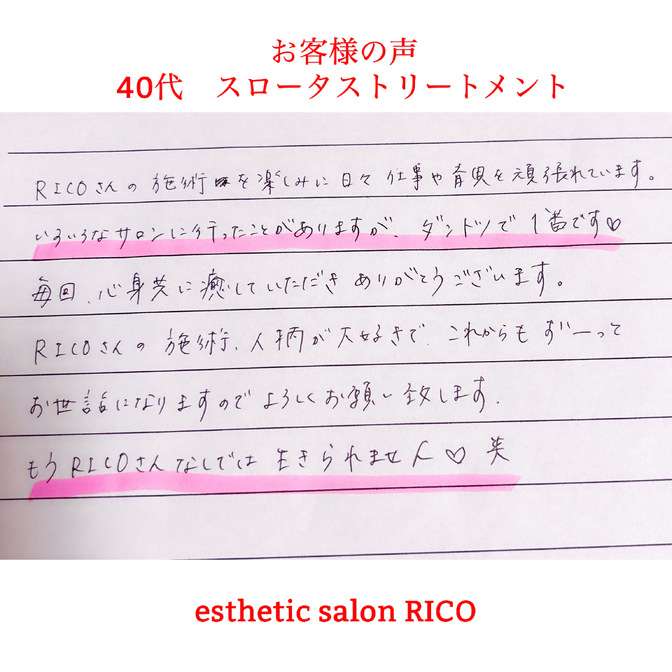 お客様の声
40代　スロータストリートメント
RICOさんの施術を楽しみに日々仕事や育児を頑張れています。
いろいろなサロンに行ったことがありますが、ダントツで1番です♡
毎回、心身共に癒していただきありがとうございます。
RICOさんの施術、人柄が大好きで、これからもずーっと
お世話になりますのでよろしくお願い致します。
もうRICOさんなしでは生きられません♡笑
esthetic salon RICO